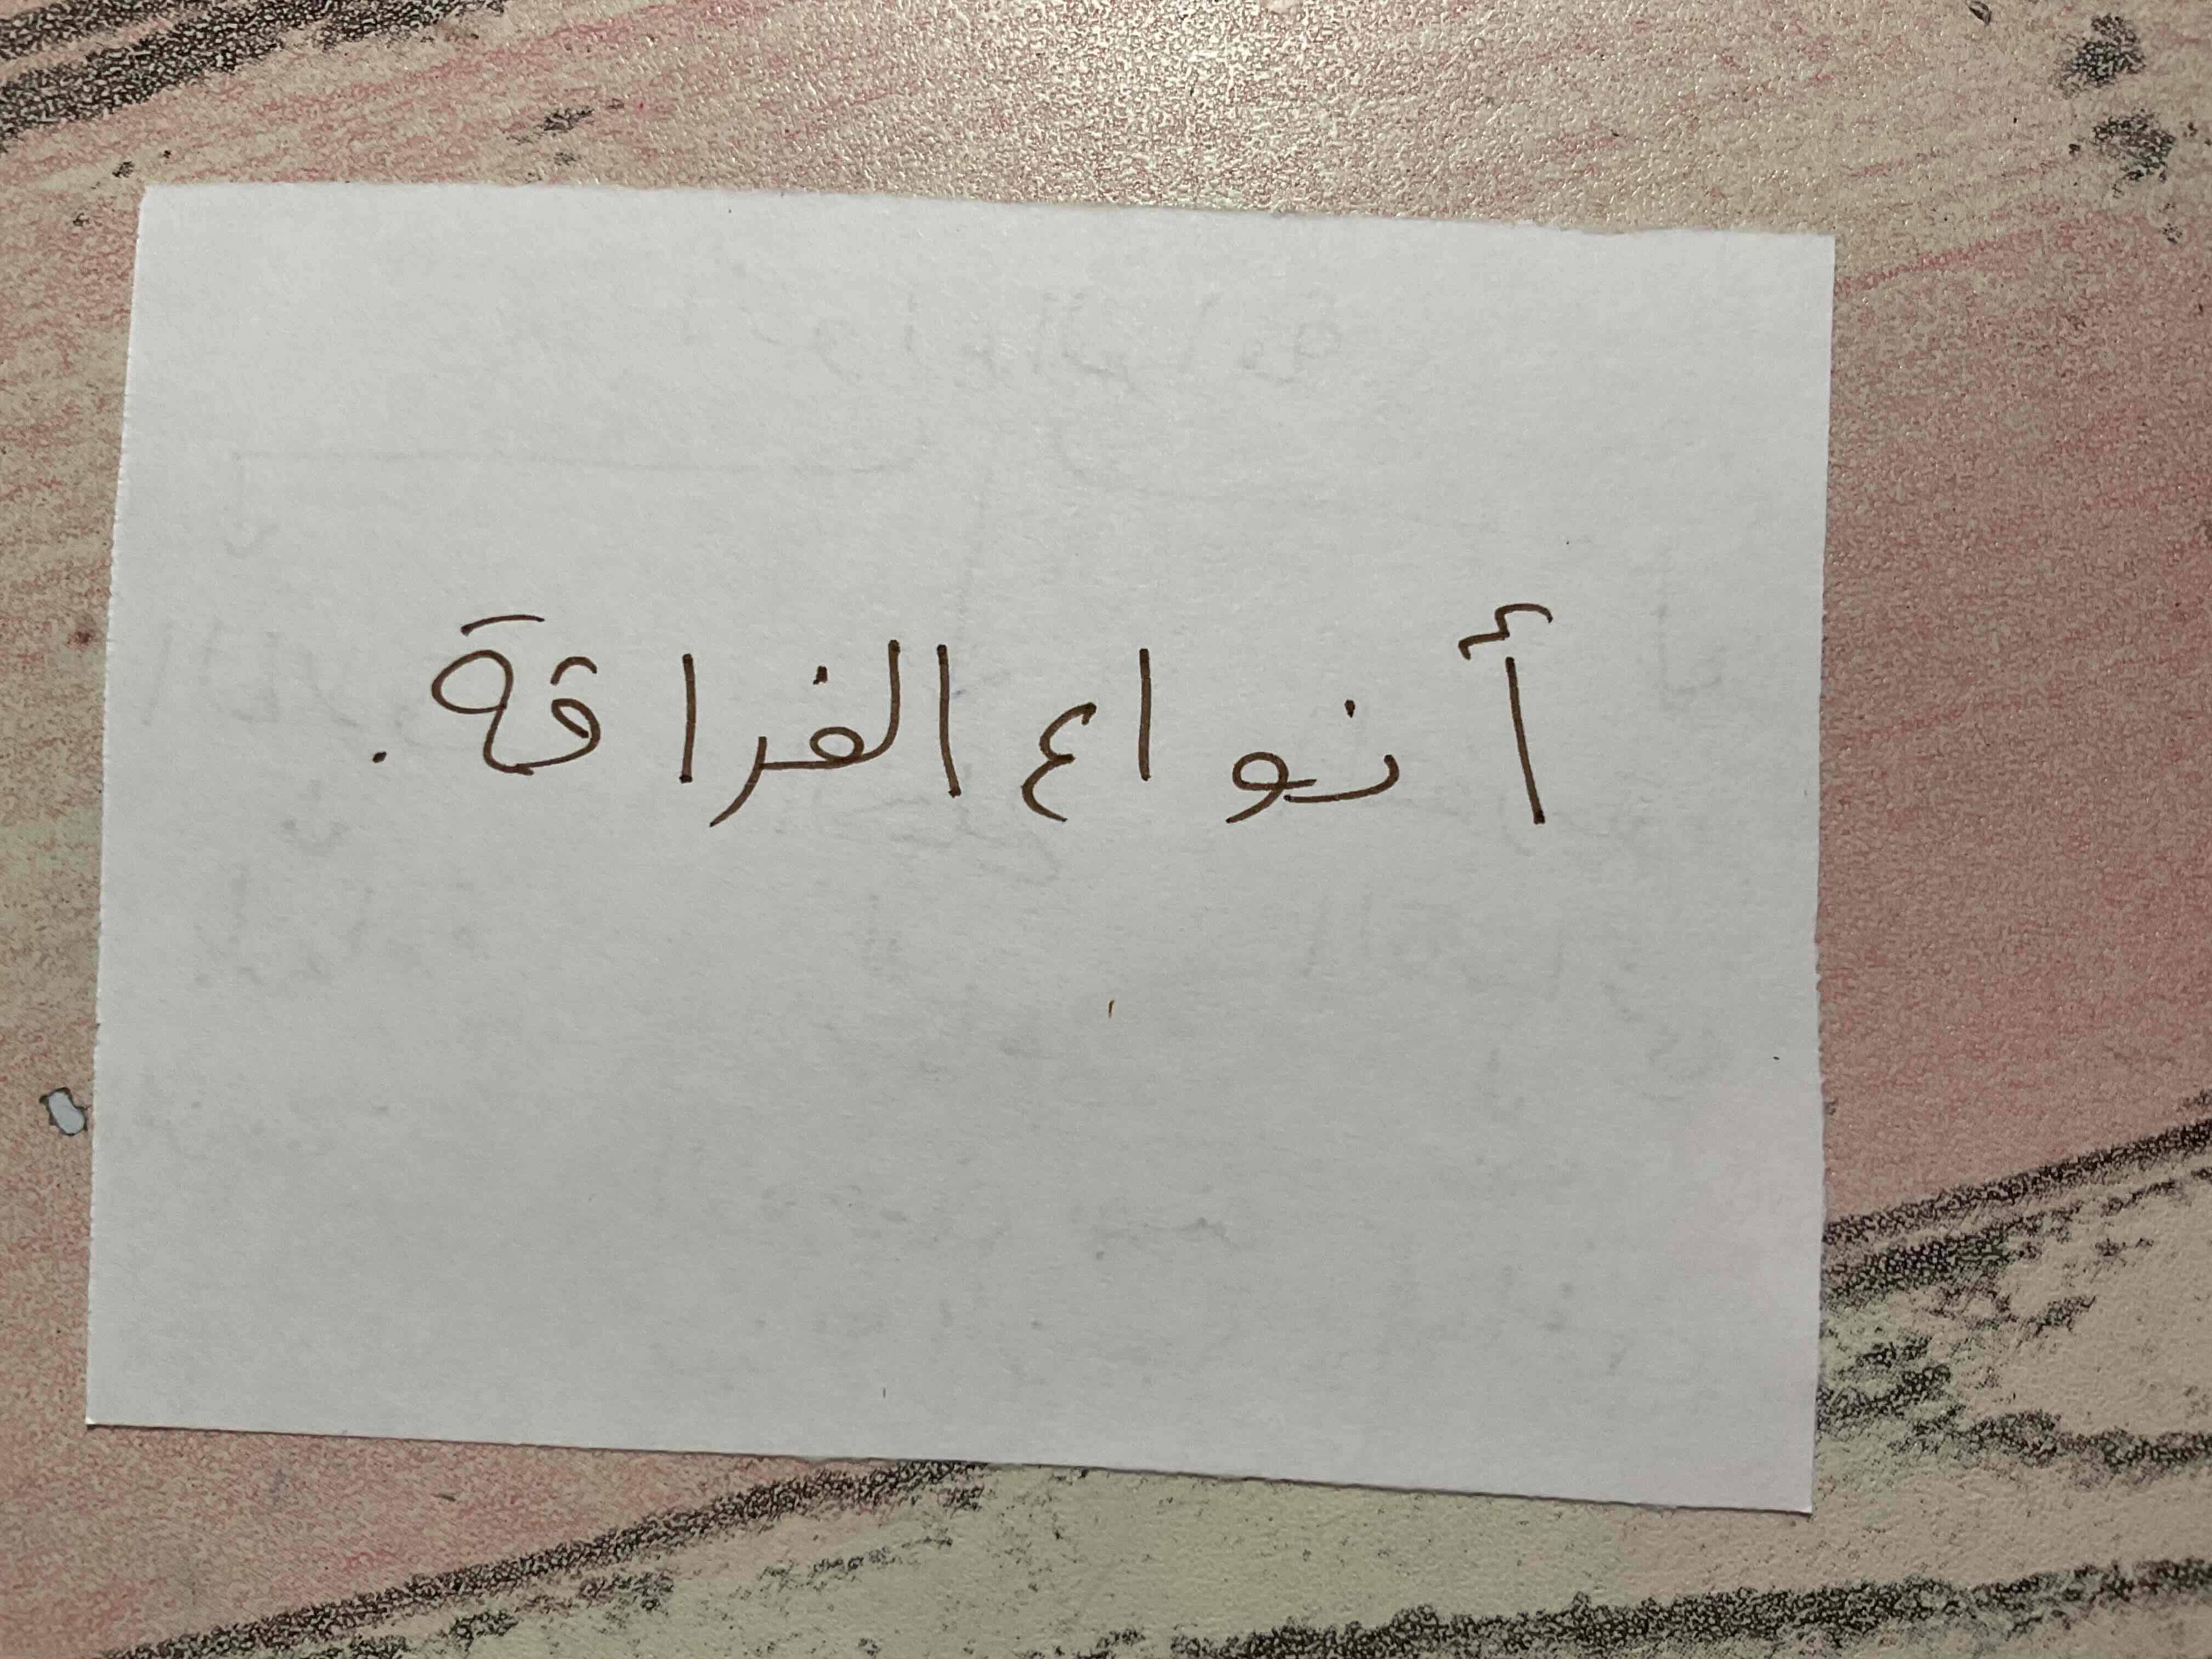 أنواع الفراقة.